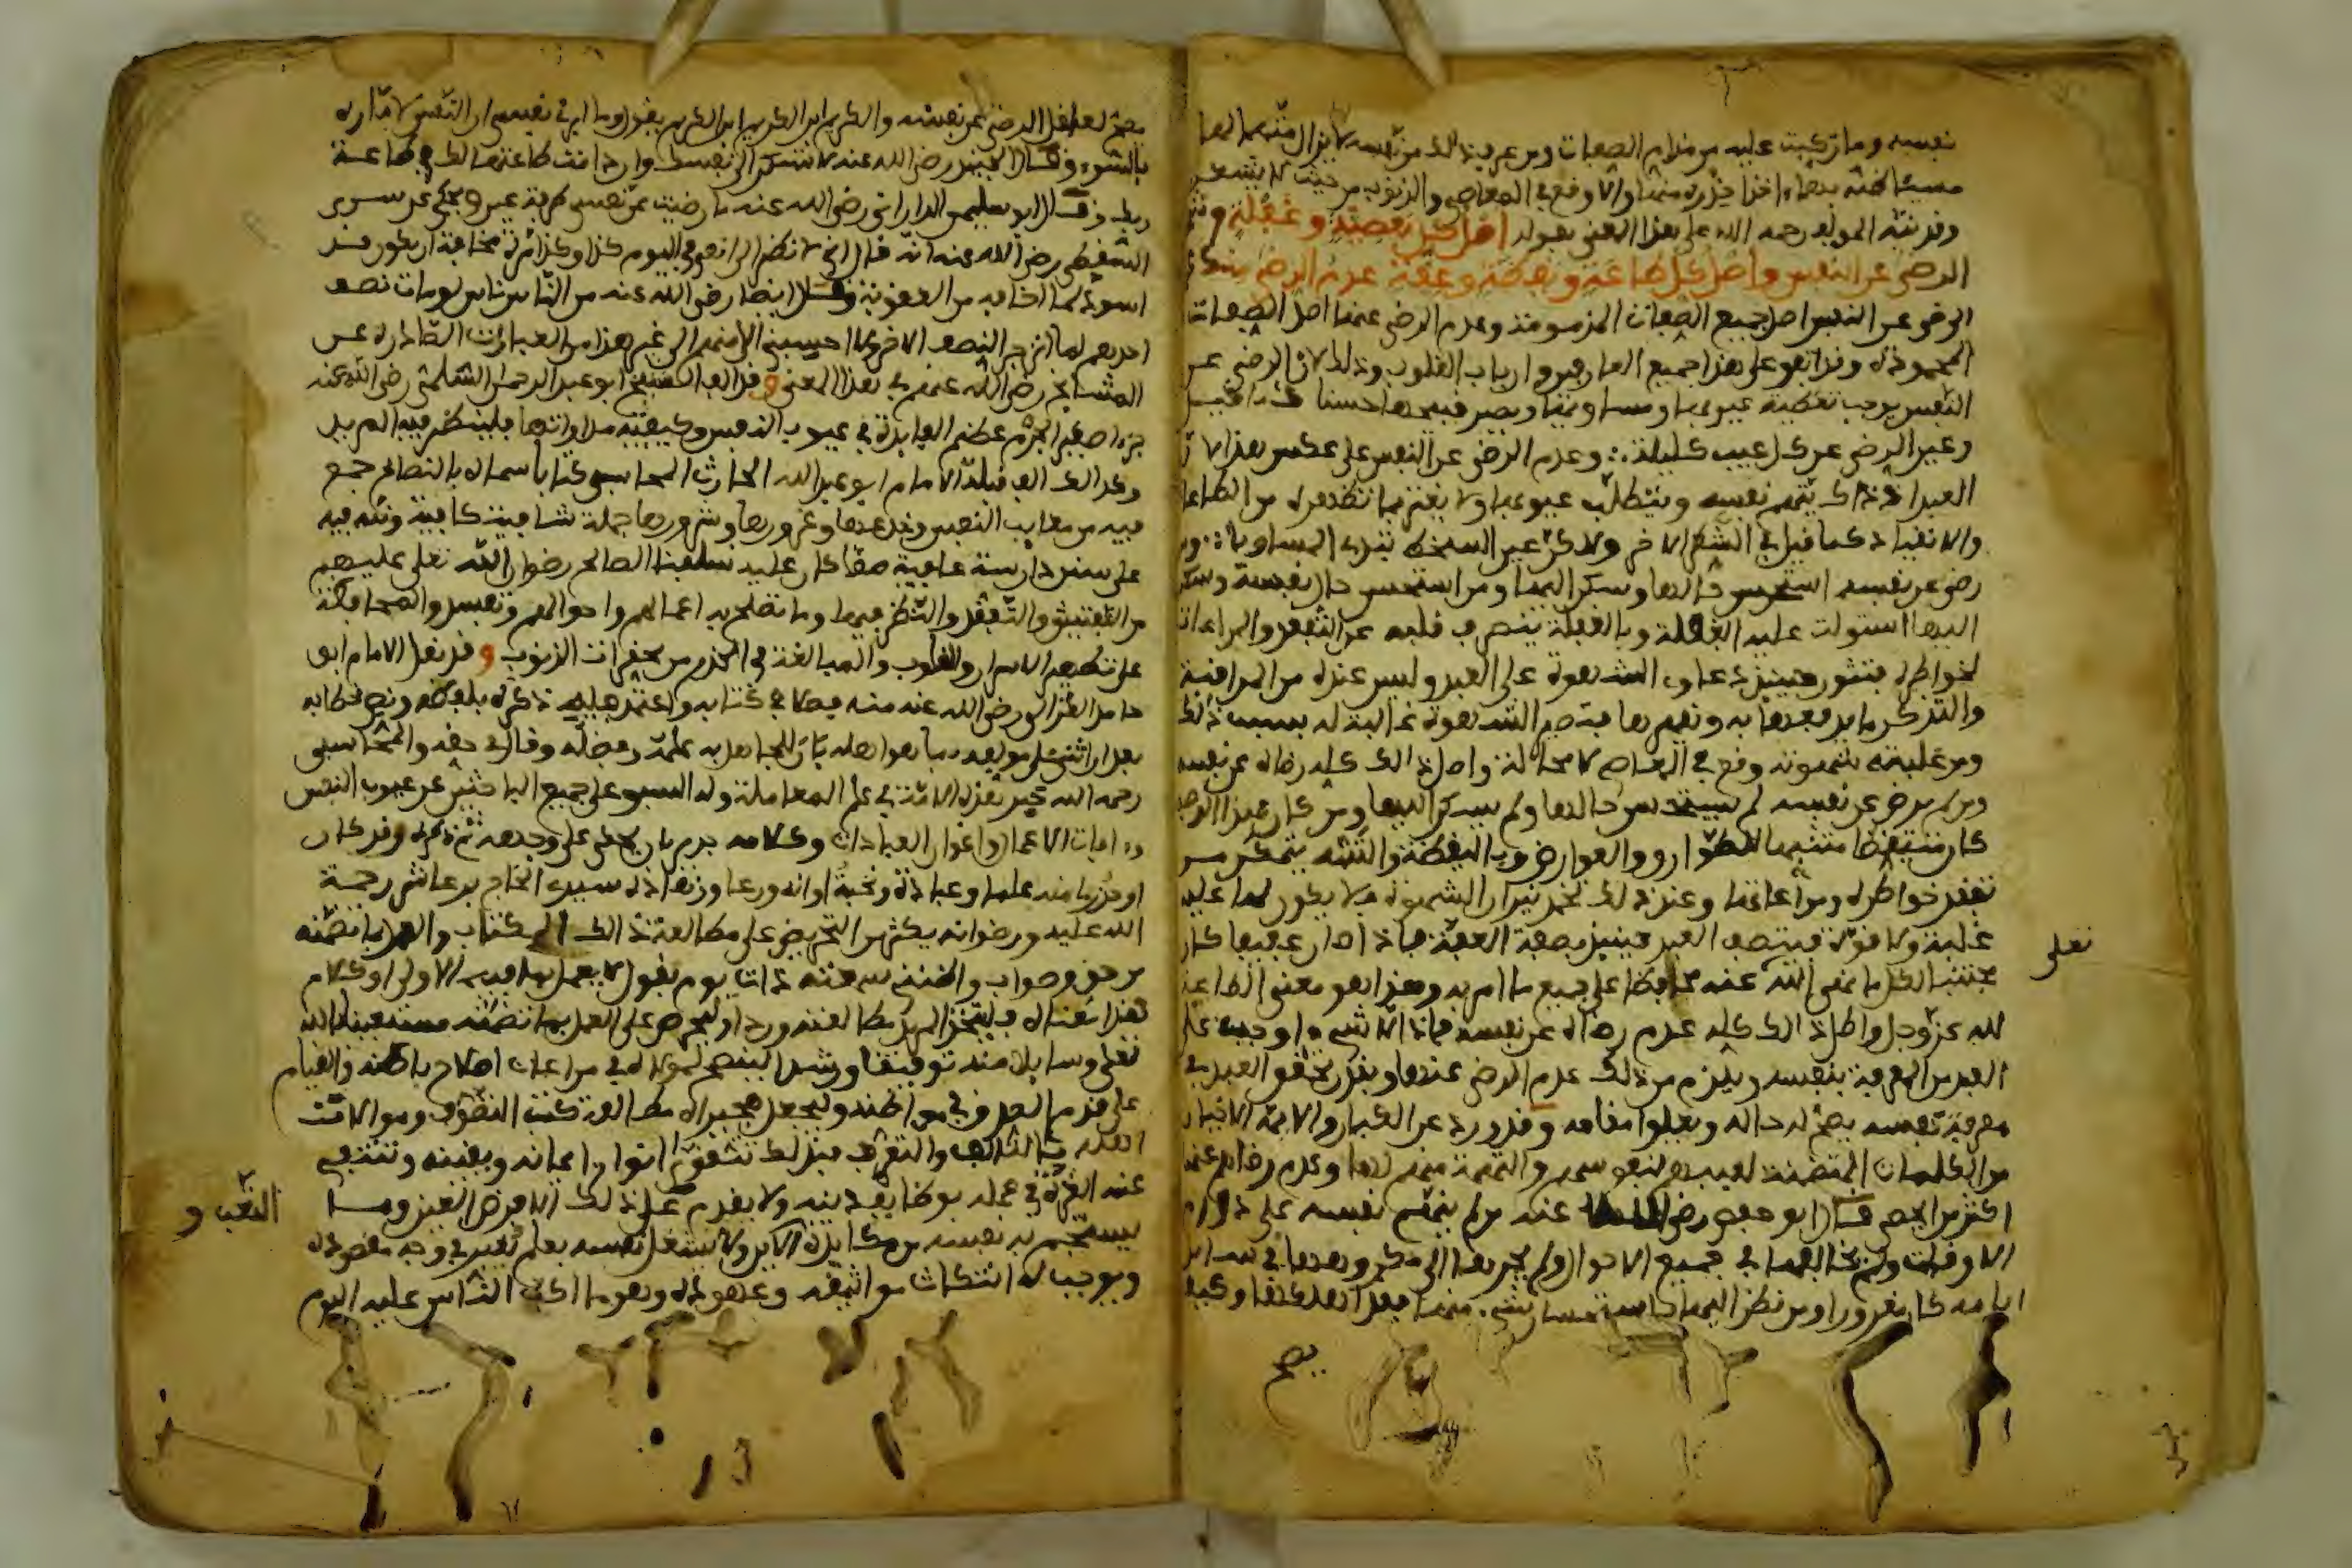 نفسه وما ركبت عليه من مذام الصفات ومن عرف ذلك من نفسه لا يزال متهما لها
مسيئا ظنه بها اخذا حذره منها والا وقع في المعاصي والذنوب من حيث لا يشعر
وقد نبه المولف رحمه الله على هذا المعنى بقوله اصل كل معصية وغفلة وشهوة
الرضى عن النفس واصل كل طاعة ويقظة وعفة عدم الرضى منك عنها
الرضى عن النفس اصل جميع الصفات المذمومة وعدم الرضى عنها اصل الصفات
المحمودة وقد اتفق على هذا جميع العارفين وارباب القلوب وذلك لان الرضى عن
النفس يوجب تغطية عيوبها ومساويها ويصير قبيحها حسنا كما قيل
وعين الرضى عن كل عيب كليلة ∴ وعدم الرضى عن النفس على عكس هذا لان
العبد اذ ذاك يتهم نفسه ويتطلب عيوبها ولا يغتر بما تظهره من الطاعة
والانقياد كما قيل في الشطر الاخر ولاكن عين السخط تبدي المساويا ∴ فمن
رضى عن نفسه استحسن حالها وسكن اليها ومن استحسن حال نفسه وسكن
اليها استولت عليه الغفلة وبالغفلة ينصرف قلبه عن التفقد والمراعات
لخواطره فتثور حينئذ دعاوى الشهوة على العبد وليس عنده من المراقبة
والتذكر ما يدفعها به ويقهرها فتصير الشهوة غالبة له بسبب ذلك
ومن غلبته شهوته وقع في المعاصي لا محالة واصل ذلك كله رضاه عن نفسه
ومن لم يرض عن نفسه لم يستحسن حالها ولم يسكن اليها ومن كان بهذا الوصف
كان متيقظا متنبها للطوارق والعوارض وباليقظة والتنبه يتمكن من
تفقد خواطره ومراعاتها وعند ذلك تخمد نيران الشهوة فلا يكون لها عليه
غلبة ولا قوة فيتصف العبد حينئذ بصفة العفة فاذا صار عفيفا كان
تعلى
مجتنبا لكل ما نهى الله عنه محافظا على جميع ما امر به وهذا هو معنى الطاعة
لله عز وجل واصل ذلك كله عدم رضاه عن نفسه فاذا لا شيء اوجب على
العبد من المعرفة بنفسه ويلزم من ذلك عدم الرضى عنها وبقدر تحقق العبد في
معرفة نفسه يصح له حاله ويعلوا مقامه وقد ورد عن الكبار والايمة الاخيار
من الكلمات المتضمنة لعيبهم لنفوسهم والتهمة منهم لها وعدم رضاهم عنها
اكثر من ان يحصى قال ابو حفص رضي الله عنه من لم يتهم نفسه على دوام
الاوقات ولم يخالفها في جميع الاحوال ولم يجرها الى مكروهها في ساير
ايامه كان مغرورا ومن نظر اليها باستحسان شيء منها فقد اهلكها وكيف
يصح
يصح لعاقل الرضى عن نفسه والكريم ابن الكريم ابن الكريم يقول وما ابرئ نفسي ان النفس لامارة
بالسوء وقال الجنيد رضي الله عنه لا تسكن الى نفسك وان دامت طاعتها لك في طاعة
ربك وقال ابو سليمن الداراني رضي الله عنه ما رضيت عن نفسي طرفة عين وحكي عن سري
السقطي رضي الله عنه انه قال اني لانظر الى انفي في اليوم كذا وكذا مرة مخافة ان يكون قد
اسود لما اخافه من العقوبة وقال ايضا رضي الله عنه من الناس ناس لو مات نصف
احدهم لما انزجر النصف الاخر ولا احسبني الا منهم الى غير هذا من العبارات الصادرة عن
المشايخ رضي الله عنهم في هذا المعنى وقد الف الشيخ ابو عبد الرحمن السلمي رضي الله عنه
جزءا صغير الجرم عظيم الفايدة في عيوب النفس وكيفية مداواتها فلينظر فيه المريد
وكذلك الف قبله الامام ابو عبد الله الحارث المحاسبي كتابا سماه بالنصائح جمع
فيه من معايب النفس وخدعها وغرورها وشرورها جملة شافية كافية ونبه فيه
على سنن دارسة عافية مما كان عليه سلفنا الصالح رضوان الله تعلى عليهم
من التفتيش والتفقد والنظر فيما وما تصلح به اعمالهم واحوالهم ونفسهم والمحافظة
على تطهير الاسرار والقلوب والمبالغة في الحذر من محقرات الذنوب وقد نقل الامام ابو
حامد الغزالي رضي الله عنه منه فصلا في كتابه واعتمد عليه ذكره بلفظه ونص خطابه
بعد ان اثنى على مولفه بما هو اهله بان للجاهل به علمه وفضله وقال في حقه والمحاسبي
رحمه الله خير هذه الامة في علم المعاملة وله السبق على جميع الباحثين عن عيوب النفس
وءافات الاعمال واغوار العبادات وكلامه جدير بان يحكى على وجهه ثم ذكره وقد كان
اوحد زمانه علما وعبادة ونخبة اوانه ورعا وزهادة سيدي الحاج بن عاشر رحمة
الله عليه ورضوانه يكثر من التحريض على مطالعة ذلك الكتاب والعمل بما تضمنه
من حق وصواب واظنني سمعته ذات يوم يقول لا يعمل بما فيه الا ولي او كلام
هذا معناه فليتخذ المريد مطالعته وردا وليحرص على العمل بما تضمنه مستعينا بالله
تعلى وسايلا منه توفيقا ورشدا لينصح لمولاه في مراعات اصلاح باطنه والقيام
على قدم الصدق في مواطنه وليجعل هجيراه مطالعة كتب التصوف وموالات
اهله بالتالف والتعرف فبذلك تتقوى انوار ايمانه ويقينه وتنتفي
عنه الغرة في عمله بوظايف دينه ولا يقدم على ذلك الا فرض العين وما
التعب و
يستجم به نفسه من مكابدة الاين ولا يشغل نفسه بعلم يغير في وجه مقصوده
ويوجب له انتكاث مواثيقه وعهوده وهو ما اكب الناس عليه اليوم